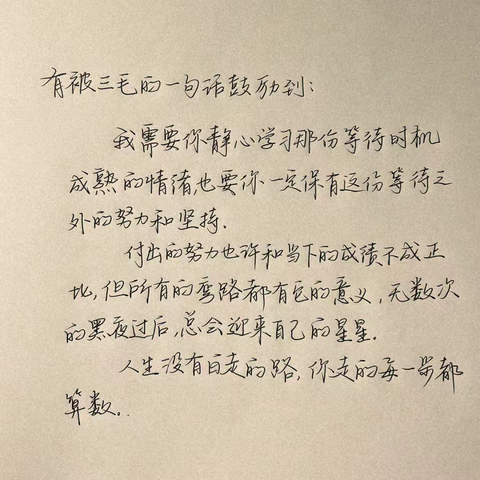 有被三毛的一句话鼓励到:
我需要你静心学习那份等待时机
成熟的情绪,也要你一定保有这份等待之
外的努力和坚持.
付出的努力也许和当下的成绩不成正
比,但所有的弯路都有它的意义,无数次
的黑夜过后,总会迎来自己的星星.
人生没有白走的路,你走的每一步都
算数..